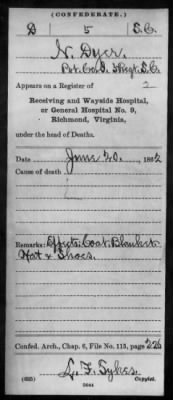 (CONFEDERATE.)
D 5 S.C.
N. Dyer
Pvt. Co. D. 5 Regt. S.C.
Appears on a Register of
2
Receiving and Wayside Hospital,
or General Hospital No. 9,
Richmond, Virginia,
under the head of Deaths.
Date June 20, 1862
Cause of death
Remarks: Effects: Coat, Blanket
Hat & Shoes.
Confed. Arch., Chap. 6, File No. 115, page 226
L. F. Sykes
(635) Copyist.